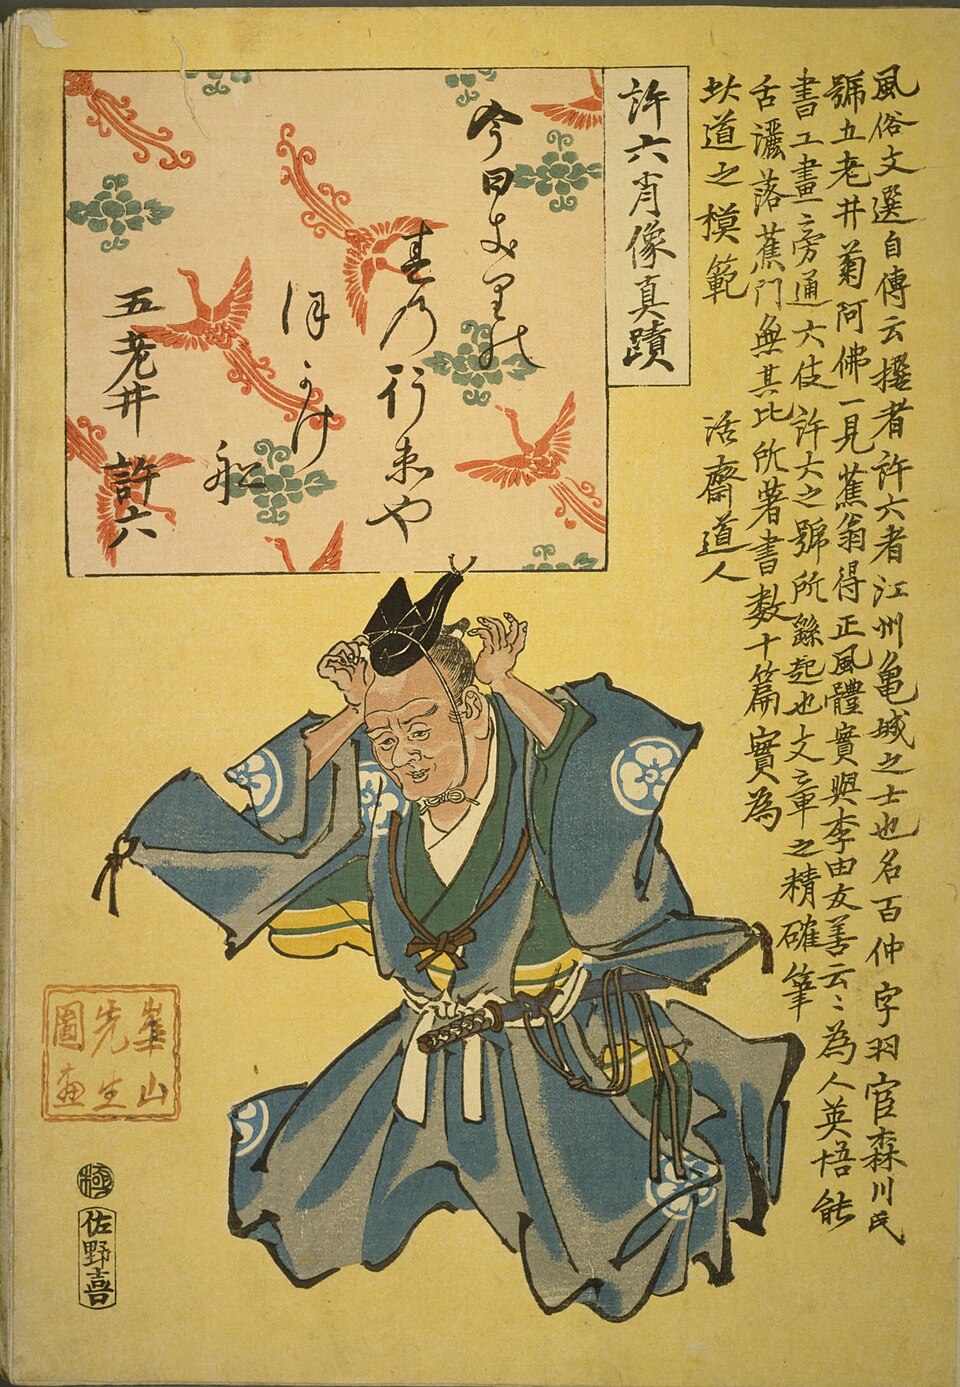 風俗文選自傳云撰者許六者江州亀城之士也名百仲字羽官森川氏
號五老井菊阿佛一見蕉翁得正風體實與李由友善云〻為人英悟能
書工畫旁通六伎許六之號所繇起也文章之精確筆
舌灑落蕉門無其比所著書数十篇實為
此道之模範 活齋道人
許六肖像真蹟
今日支里能
春乃行末や
ほかけ
船
五老井 許六
崋山
先生
圖画
極
佐野喜